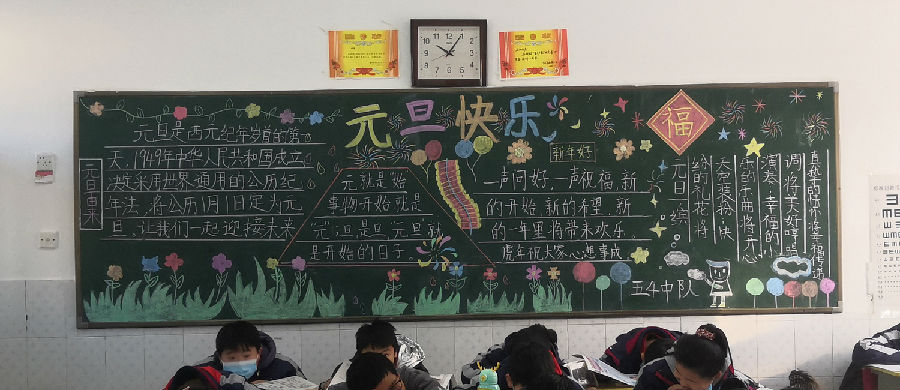 元旦快乐
福
新年好
元旦由来
元旦是西元纪年岁首的第一
天,1949年中华人民共和国成立
决定采用世界通用的公历纪
年法,将公历1月1日定为元
旦,让我们一起迎接未来
元就是“始
事物开始就是
“元”;旦是一元旦就
是开始的日子
一声问好,一声祝福,新
的开始,新的希望,新
的一年里将带来欢乐
虎年祝大家心想事成
元旦,缤
给的礼花,将
天空装扮;快
乐的乐曲,将开心
演奏;幸福的
调,将美好哼唱
五4中队